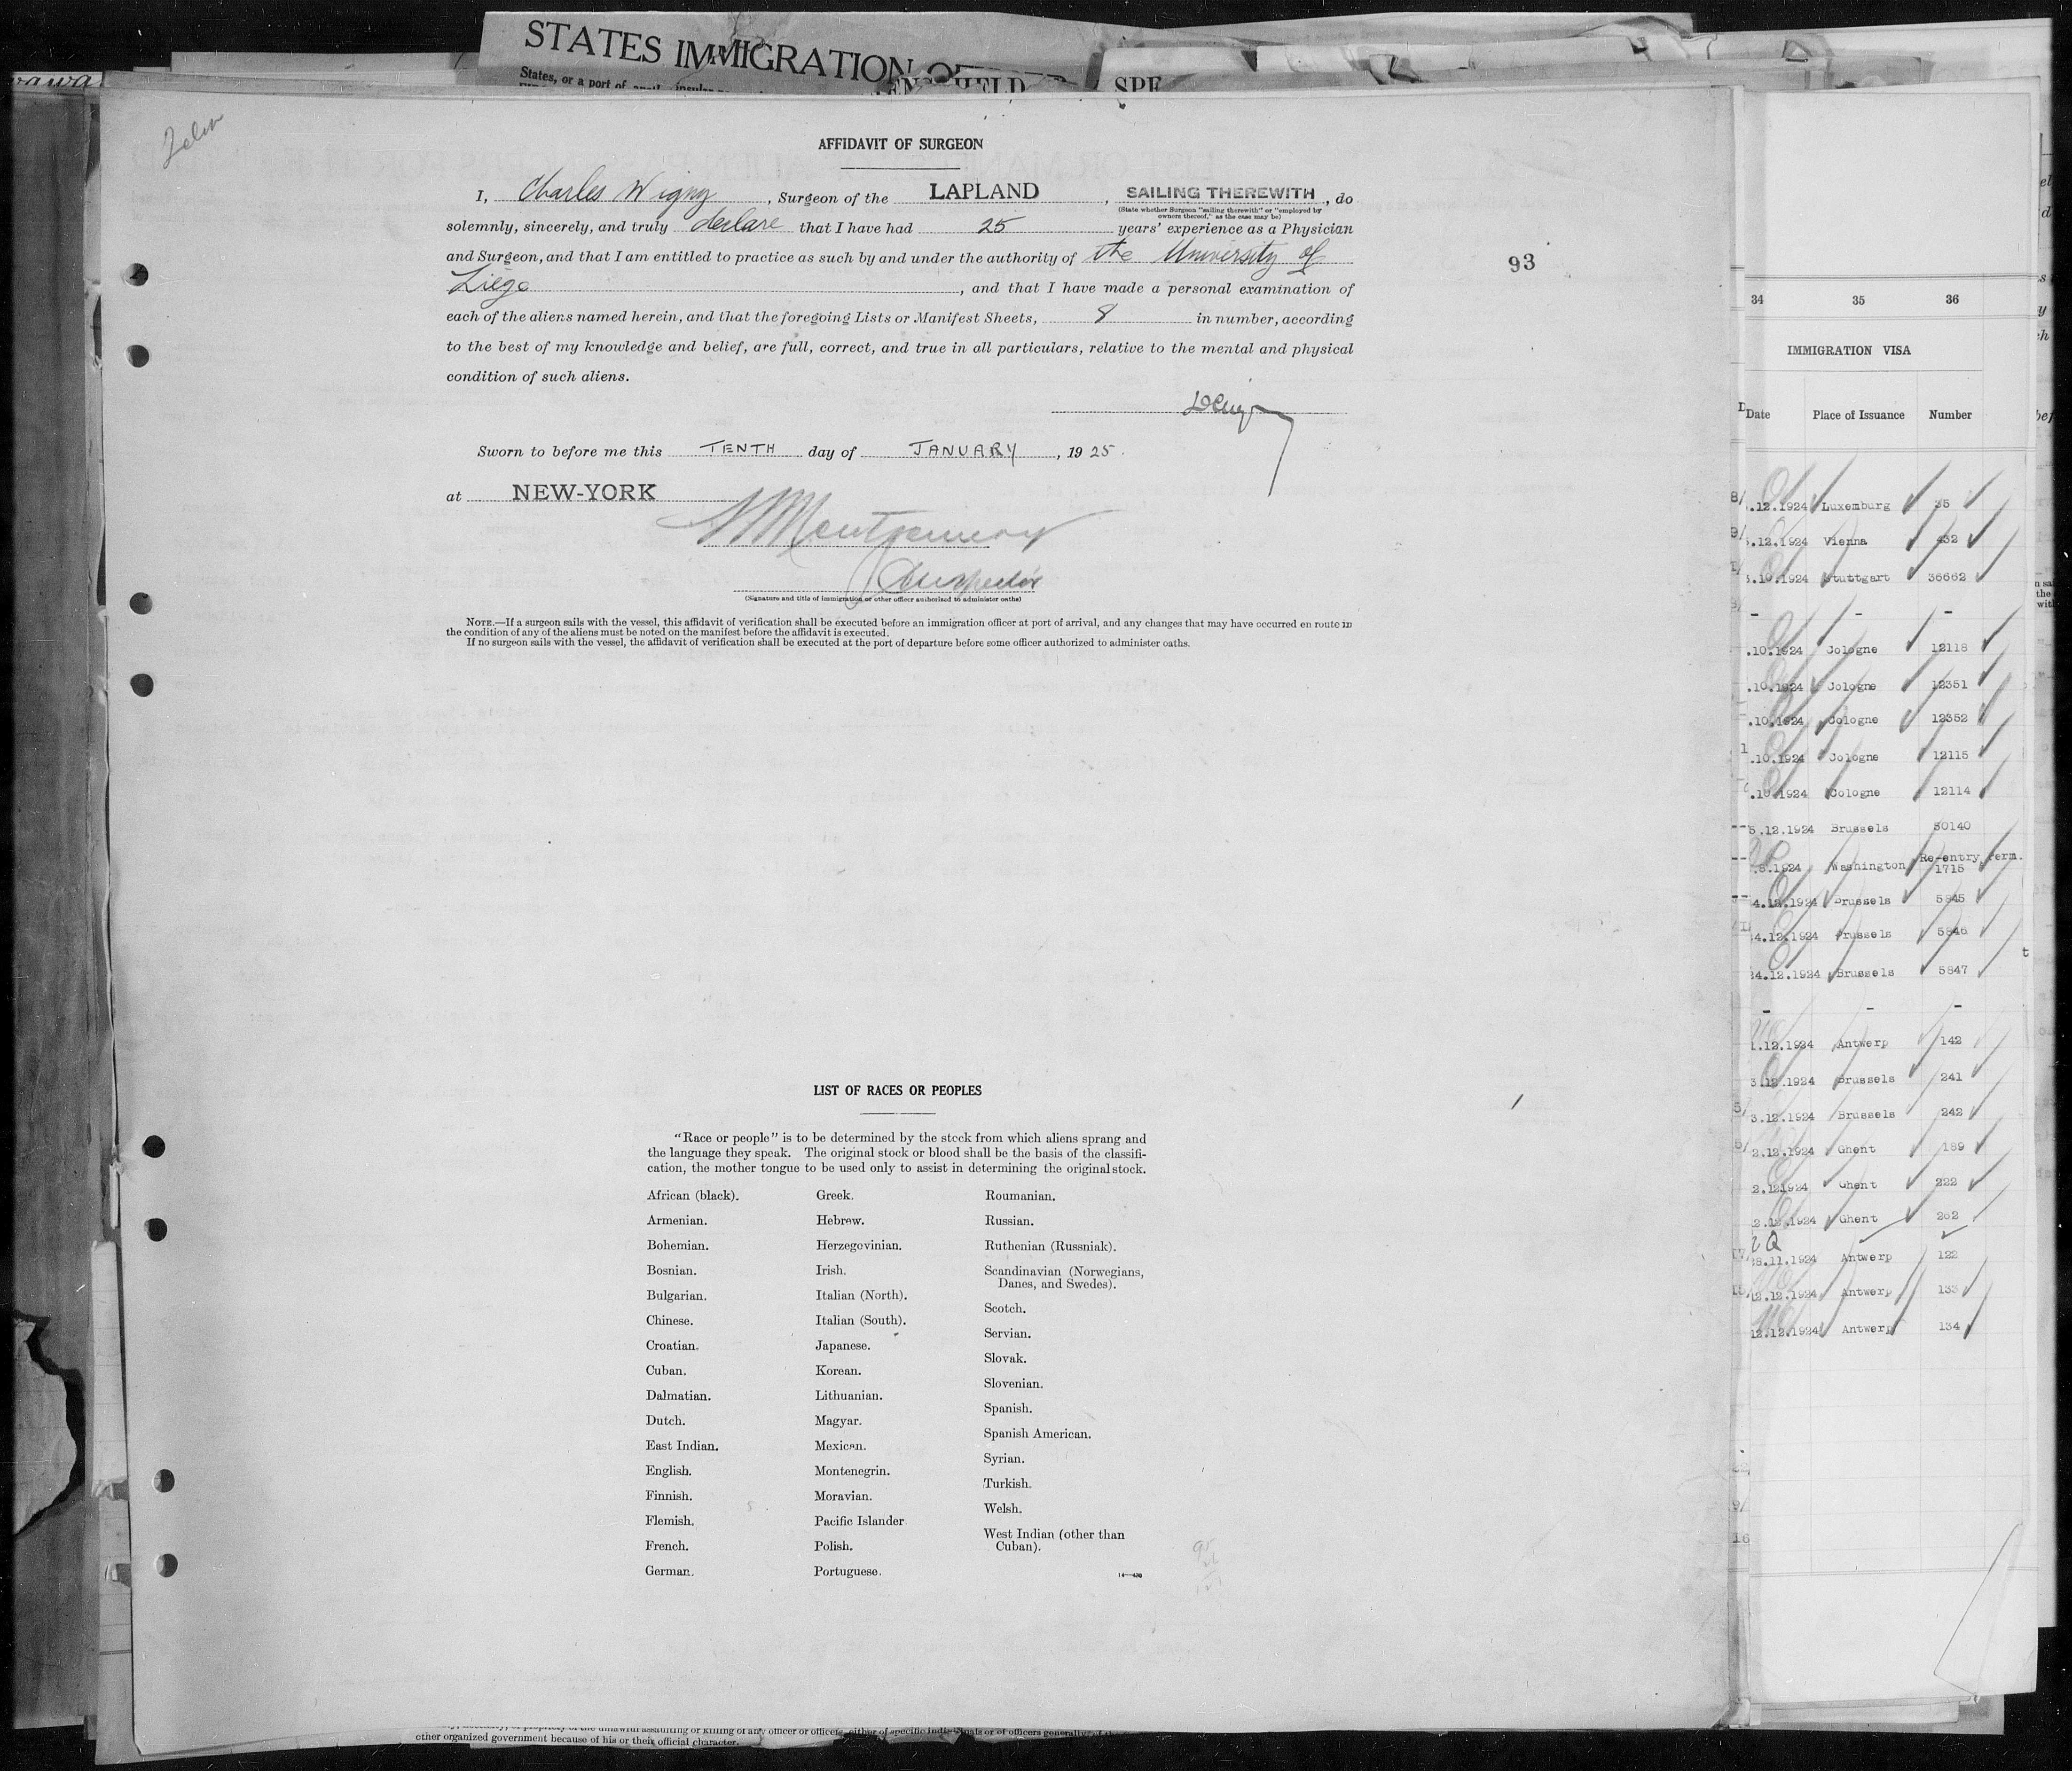 STATES IMMIGRATION
States, or a port of
HELD
SPE
AFFIDAVIT OF SURGEON
I, Charles Wigny, Surgeon of the LAPLAND, SAILING THEREWITH, do
(State whether Surgeon "sailing therewith" or "employed by
owners thereof," as the case may be)
solemnly, sincerely, and truly declare that I have had 25 years' experience as a Physician
and Surgeon, and that I am entitled to practice as such by and under the authority of the University of
Liége, and that I have made a personal examination of
each of the aliens named herein, and that the foregoing Lists or Manifest Sheets, 8 in number, according
to the best of my knowledge and belief, are full, correct, and true in all particulars, relative to the mental and physical
condition of such aliens.
93
Sworn to before me this TENTH day of JANUARY, 1925.
at NEW-YORK
Montgomery
Inspector
(Signature and title of immigration or other officer authorized to administer oaths)
NOTE.—If a surgeon sails with the vessel, this affidavit of verification shall be executed before an immigration officer at port of arrival, and any changes that may have occurred en route in
the condition of any of the aliens must be noted on the manifest before the affidavit is executed.
If no surgeon sails with the vessel, the affidavit of verification shall be executed at the port of departure before some officer authorized to administer oaths.
LIST OF RACES OR PEOPLES
"Race or people" is to be determined by the stock from which aliens sprang and
the language they speak. The original stock or blood shall be the basis of the classifi-
cation, the mother tongue to be used only to assist in determining the original stock.
African (black).
Armenian.
Bohemian.
Bosnian.
Bulgarian.
Chinese.
Croatian.
Cuban.
Dalmatian.
Dutch.
East Indian.
English.
Finnish.
Flemish.
French.
German.
Greek.
Hebrew.
Herzegovinian.
Irish.
Italian (North).
Italian (South).
Japanese.
Korean.
Lithuanian.
Magyar.
Mexican.
Montenegrin.
Moravian.
Pacific Islander
Polish.
Portuguese.
Roumanian.
Russian.
Ruthenian (Russniak).
Scandinavian (Norwegians,
Danes, and Swedes).
Scotch.
Servian.
Slovak.
Slovenian.
Spanish.
Spanish American.
Syrian.
Turkish.
Welsh.
West Indian (other than
Cuban).
34 35 36
IMMIGRATION VISA
Date Place of Issuance Number
.12.1924 Luxemburg 35
.12.1924 Vienna 432
.10.1924 Stuttgart 36662
- - -
.10.1924 Cologne 12118
.10.1924 Cologne 12351
.10.1924 Cologne 12352
.10.1924 Cologne 12115
.10.1924 Cologne 12114
.12.1924 Brussels 50140
.8.1924 Washington Re-entry Perm.
1715
4.12.1924 Brussels 5845
4.12.1924 Brussels 5846
24.12.1924 Brussels 5847
- - -
.12.1924 Antwerp 142
3.12.1924 Brussels 241
3.12.1924 Brussels 242
2.12.1924 Ghent 189
2.12.1924 Ghent 222
2.12.1924 Ghent 262
28.11.1924 Antwerp 122
12.12.1924 Antwerp 133
12.12.1924 Antwerp 134
other organized government because of his or their official character.